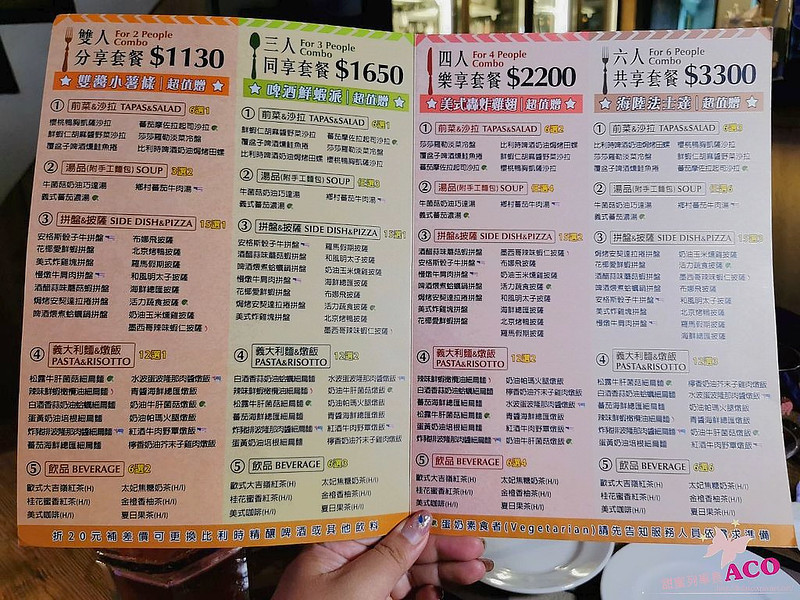 雙人 For 2 People Combo
分享套餐 $1130
★ 雙醬小薯條 | 超值贈 ★
① 前菜&沙拉 TAPAS&SALAD 6選1
櫻桃鴨胸凱薩沙拉 蕃茄摩佐拉起司沙拉
鮮蝦仁胡麻醬野菜沙拉 莎莎羅勒淡菜冷盤
覆盆子啤酒燻鮭魚捲 比利時啤酒奶油焗烤田螺
② 湯品(附手工麵包) SOUP 3選2
牛菌菇奶油巧達湯 鄉村蕃茄牛肉湯
義式蕃茄濃湯
③ 拼盤&披薩 SIDE DISH&PIZZA 15選1
安格斯骰子牛拼盤 布娜飛披薩
花椰愛鮮蝦拼盤 北京烤鴨披薩
美式炸雞拼盤 羅馬假期披薩
慢燉牛肩肉拼盤 和風明太子披薩
酒醋蒜味蘑菇蝦拼盤 海鮮總匯披薩
焗烤安契達拉捲拼盤 活力蔬食披薩
啤酒煨煮蛤蠣鍋拼盤 奶油玉米燻雞披薩
墨西哥辣味蝦仁披薩
④ 義大利麵&燉飯 PASTA&RISOTTO 12選1
松露牛肝菌菇細扁麵 水波蛋波隆那肉醬燉飯
辣味鮮蝦橄欖油細扁麵 青醬海鮮總匯燉飯
白酒香蒜奶油蛤蠣細扁麵 奶油牛肝菌菇燉飯
蛋黃奶油培根細扁麵 奶油帕瑪火腿燉飯
炸豬排波隆那肉醬細扁麵 紅酒牛肉野蕈燉飯
蕃茄海鮮總匯細扁麵 檸香奶油芥末子雞肉燉飯
⑤ 飲品 BEVERAGE 6選2
歐式大吉嶺紅茶(H) 太妃焦糖奶茶(H/I)
桂花蜜香紅茶(H/I) 金橙香柚茶(H/I)
美式咖啡(H/I) 夏日果茶(H/I)
三人 For 3 People Combo
同享套餐 $1650
★ 啤酒鮮蝦派 | 超值贈 ★
① 前菜&沙拉 TAPAS&SALAD 6選1
鮮蝦仁胡麻醬野菜沙拉 蕃茄摩佐拉起司沙拉
覆盆子啤酒燻鮭魚捲 莎莎羅勒淡菜冷盤
比利時啤酒奶油焗烤田螺 櫻桃鴨胸凱薩沙拉
② 湯品(附手工麵包) SOUP 任選3
牛菌菇奶油巧達湯 鄉村蕃茄牛肉湯
義式蕃茄濃湯
③ 拼盤&披薩 SIDE DISH&PIZZA 15選1
安格斯骰子牛拼盤 羅馬假期披薩
酒醋蒜味蘑菇蝦拼盤 和風明太子披薩
啤酒煨煮蛤蠣鍋拼盤 奶油玉米燻雞披薩
慢燉牛肩肉拼盤 海鮮總匯披薩
花椰愛鮮蝦拼盤 布娜飛披薩
焗烤安契達拉捲拼盤 活力蔬食披薩
美式炸雞拼盤 北京烤鴨披薩
墨西哥辣味蝦仁披薩
④ 義大利麵&燉飯 PASTA&RISOTTO 12選2
白酒香蒜奶油蛤蠣細扁麵 水波蛋波隆那肉醬燉飯
辣味鮮蝦橄欖油細扁麵 奶油帕瑪火腿燉飯
松露牛肝菌菇細扁麵 奶油牛肝菌菇燉飯
蕃茄海鮮總匯細扁麵 青醬海鮮總匯燉飯
炸豬排波隆那肉醬細扁麵 紅酒牛肉野蕈燉飯
蛋黃奶油培根細扁麵 檸香奶油芥末子雞肉燉飯
⑤ 飲品 BEVERAGE 6選3
歐式大吉嶺紅茶(H) 太妃焦糖奶茶(H/I)
桂花蜜香紅茶(H/I) 金橙香柚茶(H/I)
美式咖啡(H/I) 夏日果茶(H/I)
折20元補差價可更換比利時精釀啤酒或其他飲料
四人 For 4 People Combo
樂享套餐 $2200
★ 美式轟炸雞翅 | 超值贈 ★
① 前菜&沙拉 TAPAS&SALAD 6選2
莎莎羅勒淡菜冷盤 比利時啤酒奶油焗烤田螺
覆盆子啤酒燻鮭魚捲 鮮蝦仁胡麻醬野菜沙拉
蕃茄摩佐拉起司沙拉 櫻桃鴨胸凱薩沙拉
② 湯品(附手工麵包) SOUP 任選4
牛菌菇奶油巧達湯 鄉村蕃茄牛肉湯
義式蕃茄濃湯
③ 拼盤&披薩 SIDE DISH&PIZZA 15選2
酒醋蒜味蘑菇蝦拼盤 墨西哥辣味蝦仁披薩
安格斯骰子牛拼盤 布娜飛披薩
慢燉牛肩肉拼盤 奶油玉米燻雞披薩
啤酒煨煮蛤蠣鍋拼盤 活力蔬食披薩
焗烤安契達拉捲拼盤 和風明太子披薩
美式炸雞拼盤 海鮮總匯披薩
花椰愛鮮蝦拼盤 北京烤鴨披薩
羅馬假期披薩
④ 義大利麵&燉飯 PASTA&RISOTTO 12選2
辣味鮮蝦橄欖油細扁麵 奶油帕瑪火腿燉飯
白酒香蒜奶油蛤蠣細扁麵 檸香奶油芥末子雞肉燉飯
蕃茄海鮮總匯細扁麵 水波蛋波隆那肉醬燉飯
松露牛肝菌菇細扁麵 青醬海鮮總匯燉飯
炸豬排波隆那肉醬細扁麵 紅酒牛肉野蕈燉飯
蛋黃奶油培根細扁麵 奶油牛肝菌菇燉飯
⑤ 飲品 BEVERAGE 6選4
歐式大吉嶺紅茶(H) 太妃焦糖奶茶(H/I)
桂花蜜香紅茶(H/I) 金橙香柚茶(H/I)
美式咖啡(H/I) 夏日果茶(H/I)
六人 For 6 People Combo
共享套餐 $3300
★ 海陸法士達 | 超值贈 ★
① 前菜&沙拉 TAPAS&SALAD 6選3
比利時啤酒奶油焗烤田螺 櫻桃鴨胸凱薩沙拉
莎莎羅勒淡菜冷盤 鮮蝦仁胡麻醬野菜沙拉
覆盆子啤酒燻鮭魚捲 蕃茄摩佐拉起司沙拉
② 湯品(附手工麵包) SOUP 任選6
牛菌菇奶油巧達湯 鄉村蕃茄牛肉湯
義式蕃茄濃湯
③ 拼盤&披薩 SIDE DISH&PIZZA 15選3
焗烤安契達拉捲拼盤 奶油玉米燻雞披薩
花椰愛鮮蝦拼盤 活力蔬食披薩
酒醋蒜味蘑菇蝦拼盤 墨西哥辣味蝦仁披薩
啤酒煨煮蛤蠣鍋拼盤 布娜飛披薩
安格斯骰子牛拼盤 和風明太子披薩
美式炸雞拼盤 北京烤鴨披薩
慢燉牛肩肉拼盤 羅馬假期披薩
海鮮總匯披薩
④ 義大利麵&燉飯 PASTA&RISOTTO 12選3
松露牛肝菌菇細扁麵 檸香奶油芥末子雞肉燉飯
辣味鮮蝦橄欖油細扁麵 水波蛋波隆那肉醬燉飯
白酒香蒜奶油蛤蠣細扁麵 奶油帕瑪火腿燉飯
蕃茄海鮮總匯細扁麵 青醬海鮮總匯燉飯
炸豬排波隆那肉醬細扁麵 奶油牛肝菌菇燉飯
蛋黃奶油培根細扁麵 紅酒牛肉野蕈燉飯
⑤ 飲品 BEVERAGE 6選6
歐式大吉嶺紅茶(H) 太妃焦糖奶茶(H/I)
桂花蜜香紅茶(H/I) 金橙香柚茶(H/I)
美式咖啡(H/I) 夏日果茶(H/I)
蛋奶素食者(Vegetarian)請先告知服務人員依需求準備
ACO